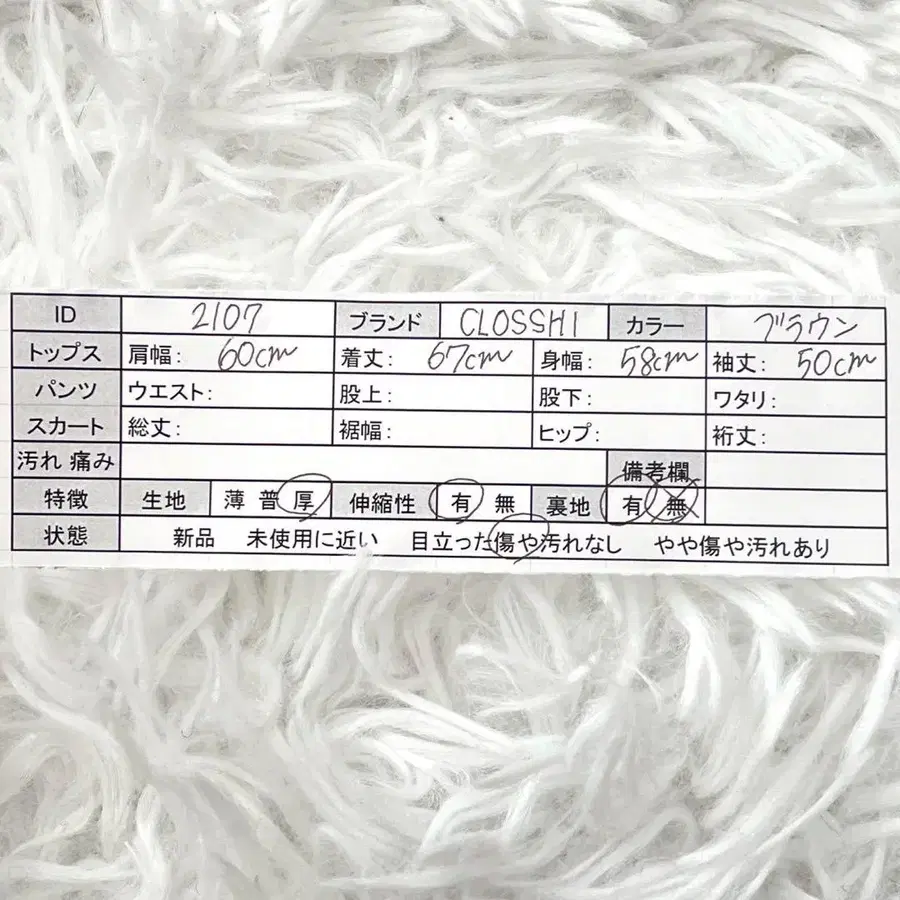 ID 2107 ブランド CLOSSHI カラー ブラウン
トップス 肩幅: 60cm 着丈: 67cm 身幅: 58cm 袖丈: 50cm
パンツ ウエスト: 股上: 股下: ワタリ:
スカート 総丈: 裾幅: ヒップ: 裄丈:
汚れ 痛み 備考欄
特徴 生地 薄 普 厚 伸縮性 有 無 裏地 有 無
状態 新品 未使用に近い 目立った傷や汚れなし やや傷や汚れあり